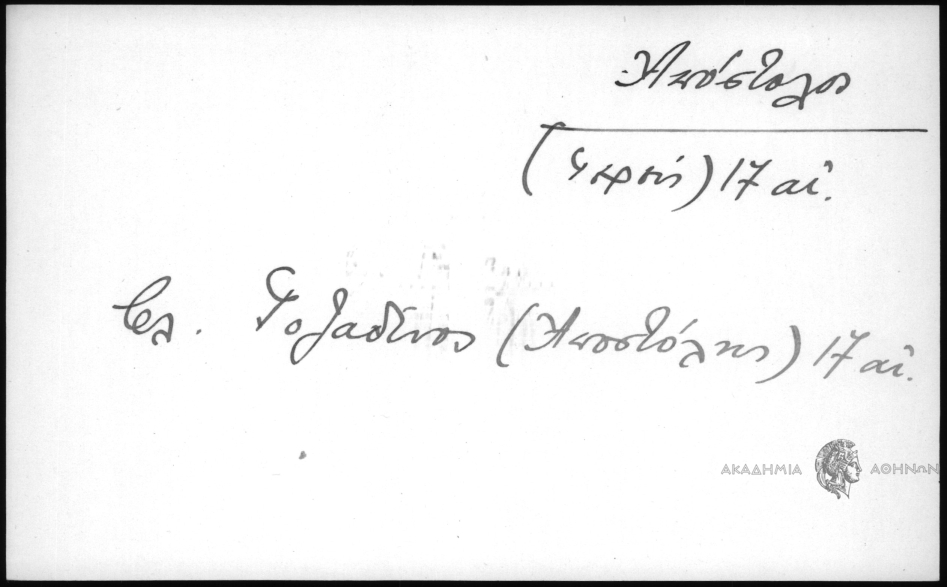 Ἀπόστολος
( ) 17 αἰ.
βλ. Γοζαδῖνος (Ἀποστόλης) 17 αἰ.
ΑΚΑΔΗΜΙΑ ΑΘΗΝΩΝ